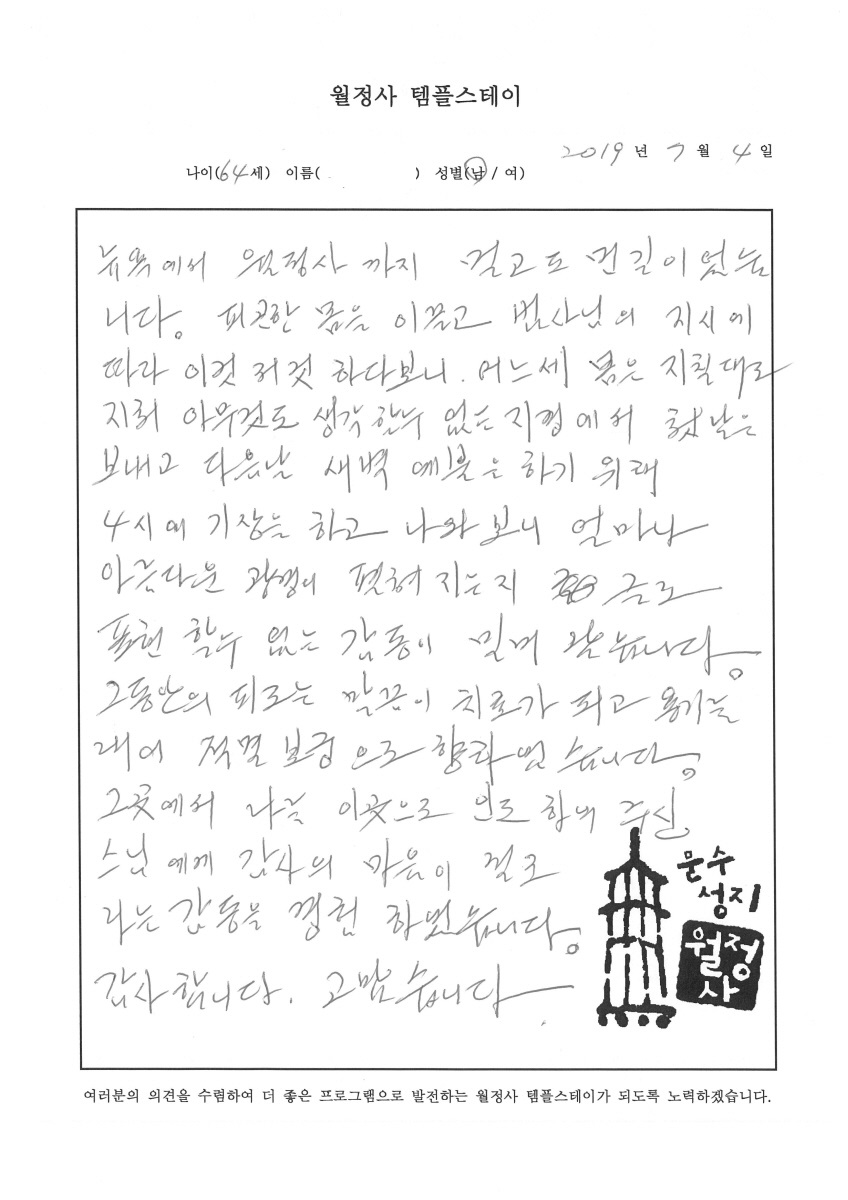 월정사 템플스테이
2019 년 7 월 4 일
나이(64세) 이름( ) 성별(남 / 여)
뉴욕에서 월정사 까지 멀고도 먼길이었습
니다. 피곤한 몸을 이끌고 법사님의 지시에
따라 이것 저것 하다보니. 어느세 몸은 지칠대로
지춰 아무것도 생각 할수 없는 지경에서 첫날은
보내고 다음날 새벽 예불은 하기 위해
4시에 기상을 하고 나와 보니 얼마나
아름다운 광경이 펼쳐 지는지 글로
표현 할수 없는 감동이 밀려 왔습니다.
그동안의 피로는 말끔이 치료가 되고 용기를
내어 적멸보궁으로 향하였습니다.
그곳에서 나를 이곳으로 인도 함께 주신
스님 에게 감사의 마음이 절로
나는 감동을 경험 하였습니다.
감사합니다. 고맙습니다
문수
성지
월정
사
여러분의 의견을 수렴하여 더 좋은 프로그램으로 발전하는 월정사 템플스테이가 되도록 노력하겠습니다.